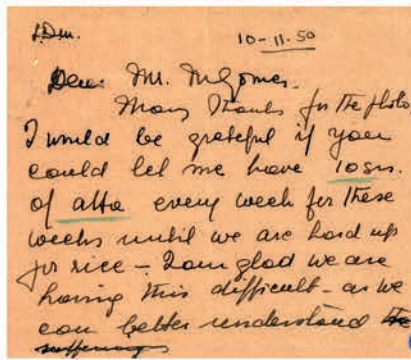 L.D.M.
10-11-50
Dear Mr. McGomes.
Many Thanks for the photo
I would be grateful if you
could let me have 10 srs.
of atta every week for these
weeks until we are hard up
for rice – I am glad we are
having this difficult – as we
can better understand the
sufferings